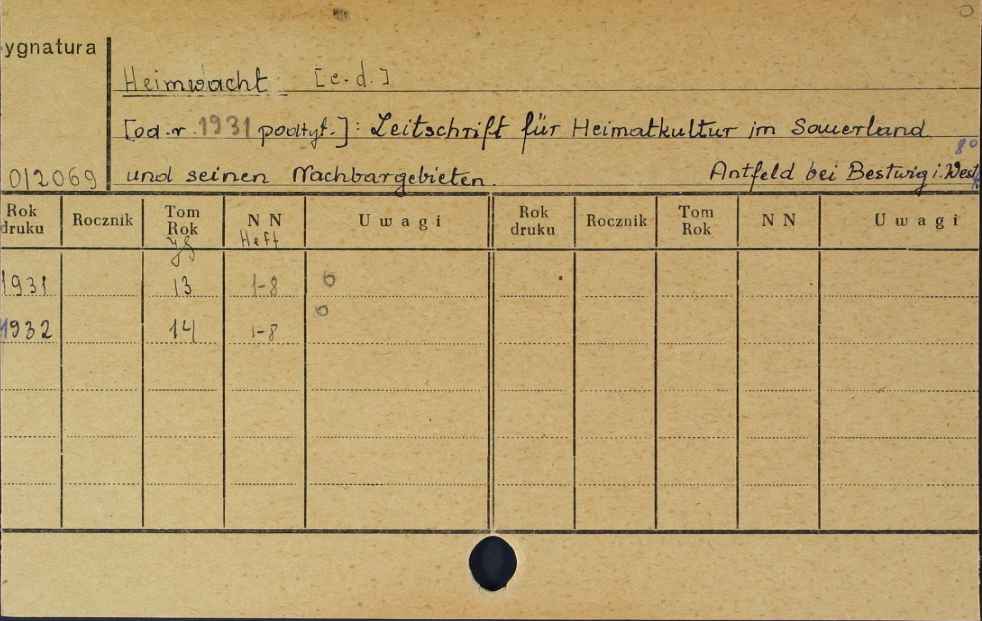 ygnatura
Heimwacht [c.d.]
[od r. 1931 podtyt.]: Zeitschrift für Heimatkultur im Sauerland
8°
012069 und seinen Nachbargebieten. Antfeld bei Bestwig i. Westf
Rok druku Rocznik Tom Rok NN Uwagi Rok druku Rocznik Tom Rok NN Uwagi
Jg Heft
1931 13 1-8
1932 14 1-8